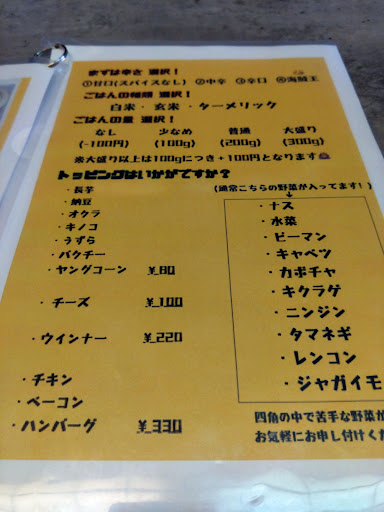 まずは辛さ 選択！
①甘口(スパイスなし) ②中辛 ③辛口 ④海賊王
ごはんの種類 選択！
白米・玄米・ターメリック
ごはんの量 選択！
なし 少なめ 普通 大盛り
(-100円) (100g) (200g) (300g)
※大盛り以上は100gにつき+100円となります
トッピングはいかがですか？
(通常こちらの野菜が入ってます！)
・長芋
・納豆
・オクラ
・キノコ
・うずら
・パクチー
・ヤングコーン ¥80
・チーズ ¥100
・ウインナー ¥220
・チキン
・ベーコン
・ハンバーグ ¥330
・ナス
・水菜
・ピーマン
・キャベツ
・カボチャ
・キクラゲ
・ニンジン
・タマネギ
・レンコン
・ジャガイモ
四角の中で苦手な野菜が
お気軽にお申し付けくだ